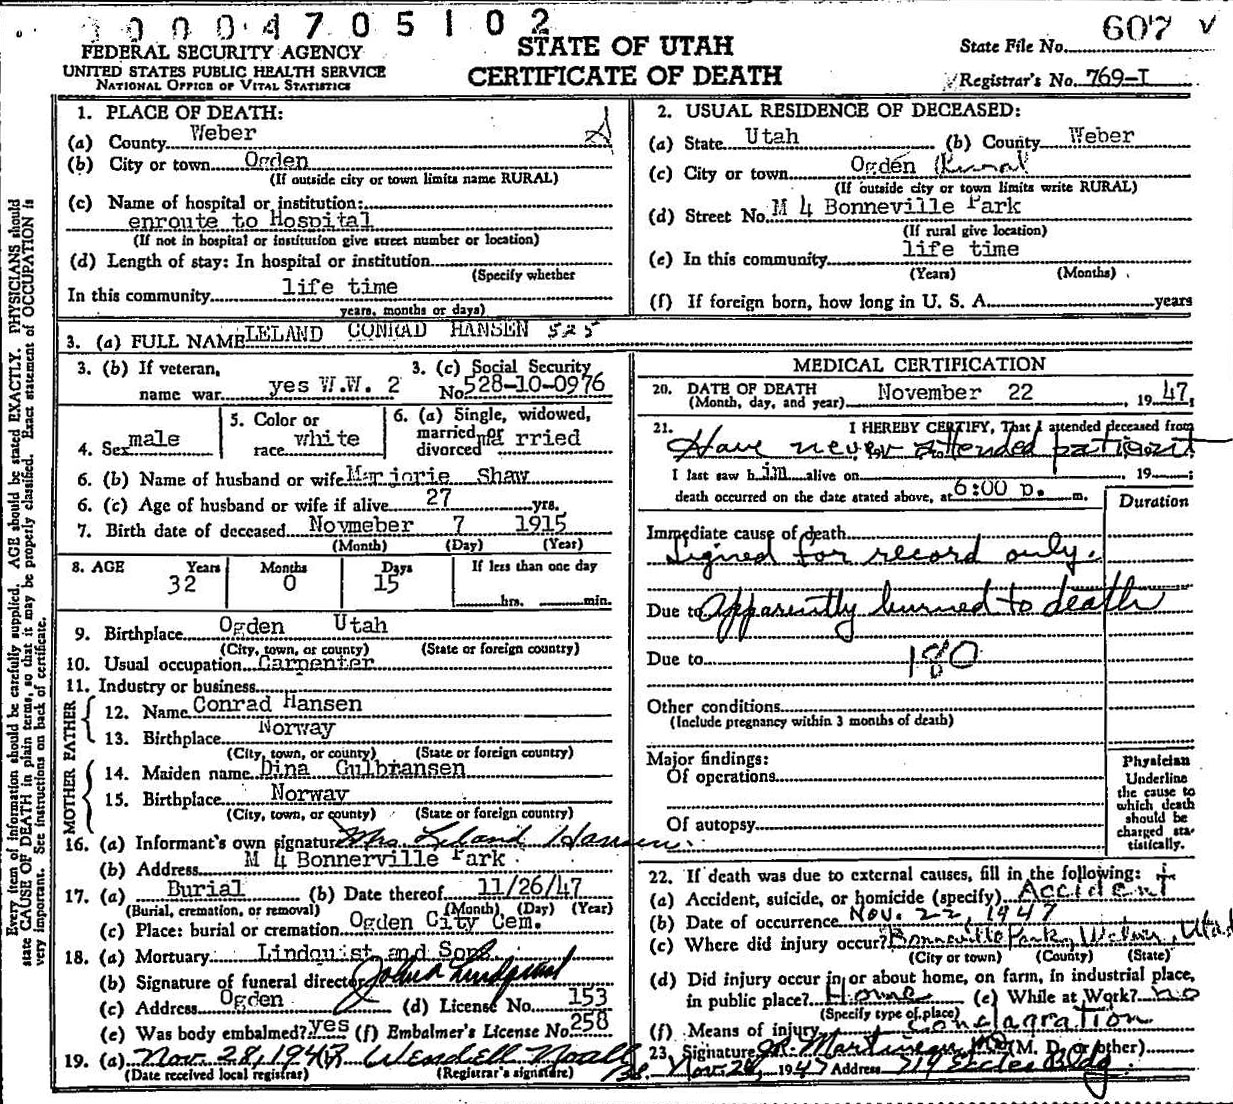 00004705102
FEDERAL SECURITY AGENCY
UNITED STATES PUBLIC HEALTH SERVICE
NATIONAL OFFICE OF VITAL STATISTICS
STATE OF UTAH
CERTIFICATE OF DEATH
State File No. 607 v
Registrar's No. 769-I
Every item of information should be carefully supplied. AGE should be stated EXACTLY. PHYSICIANS should
state CAUSE OF DEATH in plain terms, so that it may be properly classified. Exact statement of OCCUPATION is
very important. See instructions on back of certificate.
1. PLACE OF DEATH:
(a) County Weber
(b) City or town Ogden
(If outside city or town limits name RURAL)
(c) Name of hospital or institution:
enroute to Hospital
(If not in hospital or institution give street number or location)
(d) Length of stay: In hospital or institution
(Specify whether
In this community life time
years, months or days)
2. USUAL RESIDENCE OF DECEASED:
(a) State Utah (b) County Weber
(c) City or town Ogden Rural
(If outside city or town limits write RURAL)
(d) Street No. M 4 Bonneville Park
(If rural give location)
(e) In this community life time
(Years) (Months)
(f) If foreign born, how long in U. S. A. years
3. (a) FULL NAME LELAND CONRAD HANSEN 525
3. (b) If veteran,
name war yes W.W. 2
3. (c) Social Security
No. 528-10-0976
4. Sex male
5. Color or
race white
6. (a) Single, widowed,
married or
divorced ma rried
6. (b) Name of husband or wife Marjorie Shaw
6. (c) Age of husband or wife if alive 27 yrs.
7. Birth date of deceased Novmeber 7 1915
(Month) (Day) (Year)
8. AGE Years Months Days If less than one day
32 0 15 hrs. min.
9. Birthplace Ogden Utah
(City, town, or county) (State or foreign country)
10. Usual occupation Carpenter
11. Industry or business
FATHER
12. Name Conrad Hansen
13. Birthplace Norway
(City, town, or county) (State or foreign country)
MOTHER
14. Maiden name Dina Gulbransen
15. Birthplace Norway
(City, town, or county) (State or foreign country)
16. (a) Informant's own signature Mrs. Leland Hansen.
(b) Address M 4 Bonnerville Park
17. (a) Burial (b) Date thereof 11/26/47
(Burial, cremation, or removal) (Month) (Day) (Year)
(c) Place: burial or cremation Ogden City Cem.
18. (a) Mortuary Lindquist and Sons
(b) Signature of funeral director John A Lindquist
(c) Address Ogden (d) License No. 153
(e) Was body embalmed? yes (f) Embalmer's License No. 258
19. (a) Nov. 28, 1947 Wendell Noall
(Date received local registrar) (Registrar's signature)
MEDICAL CERTIFICATION
20. DATE OF DEATH
(Month, day, and year) November 22, 1947
21. I HEREBY CERTIFY, That I attended deceased from
Have never attended patient
I last saw h im alive on , 19 ;
death occurred on the date stated above, at 6:00 p. m.
Duration
Immediate cause of death
Signed for record only.
Due to Apparently burned to death
Due to 180
Other conditions
(Include pregnancy within 3 months of death)
Major findings:
Of operations
Of autopsy
Physician
Underline
the cause to
which death
should be
charged sta-
tistically.
22. If death was due to external causes, fill in the following:
(a) Accident, suicide, or homicide (specify) Accident
(b) Date of occurrence Nov. 22, 1947
(c) Where did injury occur? Bonneville Park, Weber, Utah
(City or town) (County) (State)
(d) Did injury occur in or about home, on farm, in industrial place,
in public place? Home (e) While at Work? no
(Specify type of place)
(f) Means of injury Conclagration
23. Signature Martineau MD (M. D. or other)
Nov. 26, 1947 Address 719 Eccles Bldg